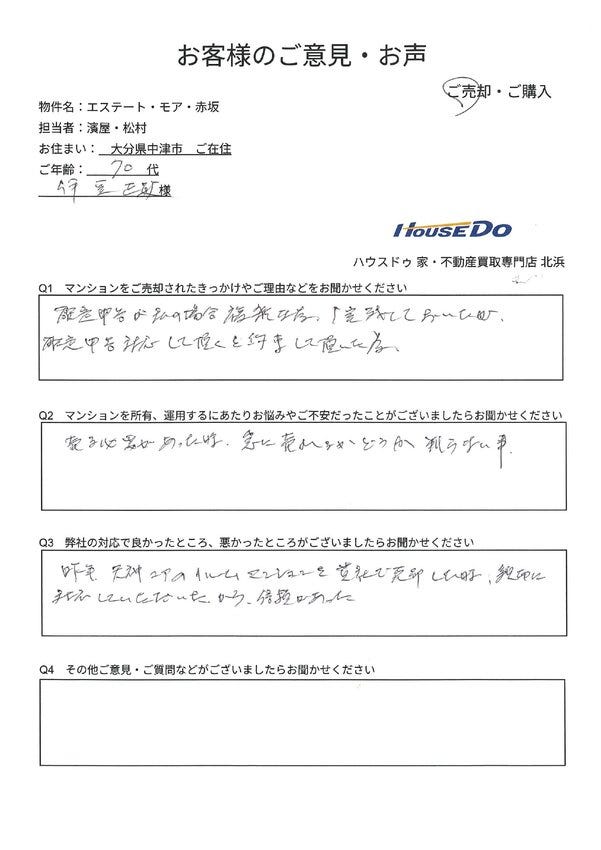 お客様のご意見・お声
ご売却・ご購入
物件名：エステート・モア・赤坂
担当者：濱屋・松村
お住まい： 大分県中津市 ご在住
ご年齢： 70 代
様
HOUSEDO
ハウスドゥ 家・不動産買取専門店 北浜
Q1 マンションをご売却されたきっかけやご理由などをお聞かせください
確定申告が私の場合複雑な為、1室残しておいたが、
確定申告対応して頂くと約束して頂いた為。
Q2 マンションを所有、運用するにあたりお悩みやご不安だったことがございましたらお聞かせください
売る必要があった時、急に売れるかどうか判らない事。
Q3 弊社の対応で良かったところ、悪かったところがございましたらお聞かせください
昨年、天神コアのワンルームマンションを貴社で売却した時、親切に
対応していただいたから、信頼があった
Q4 その他ご意見・ご質問などがございましたらお聞かせください